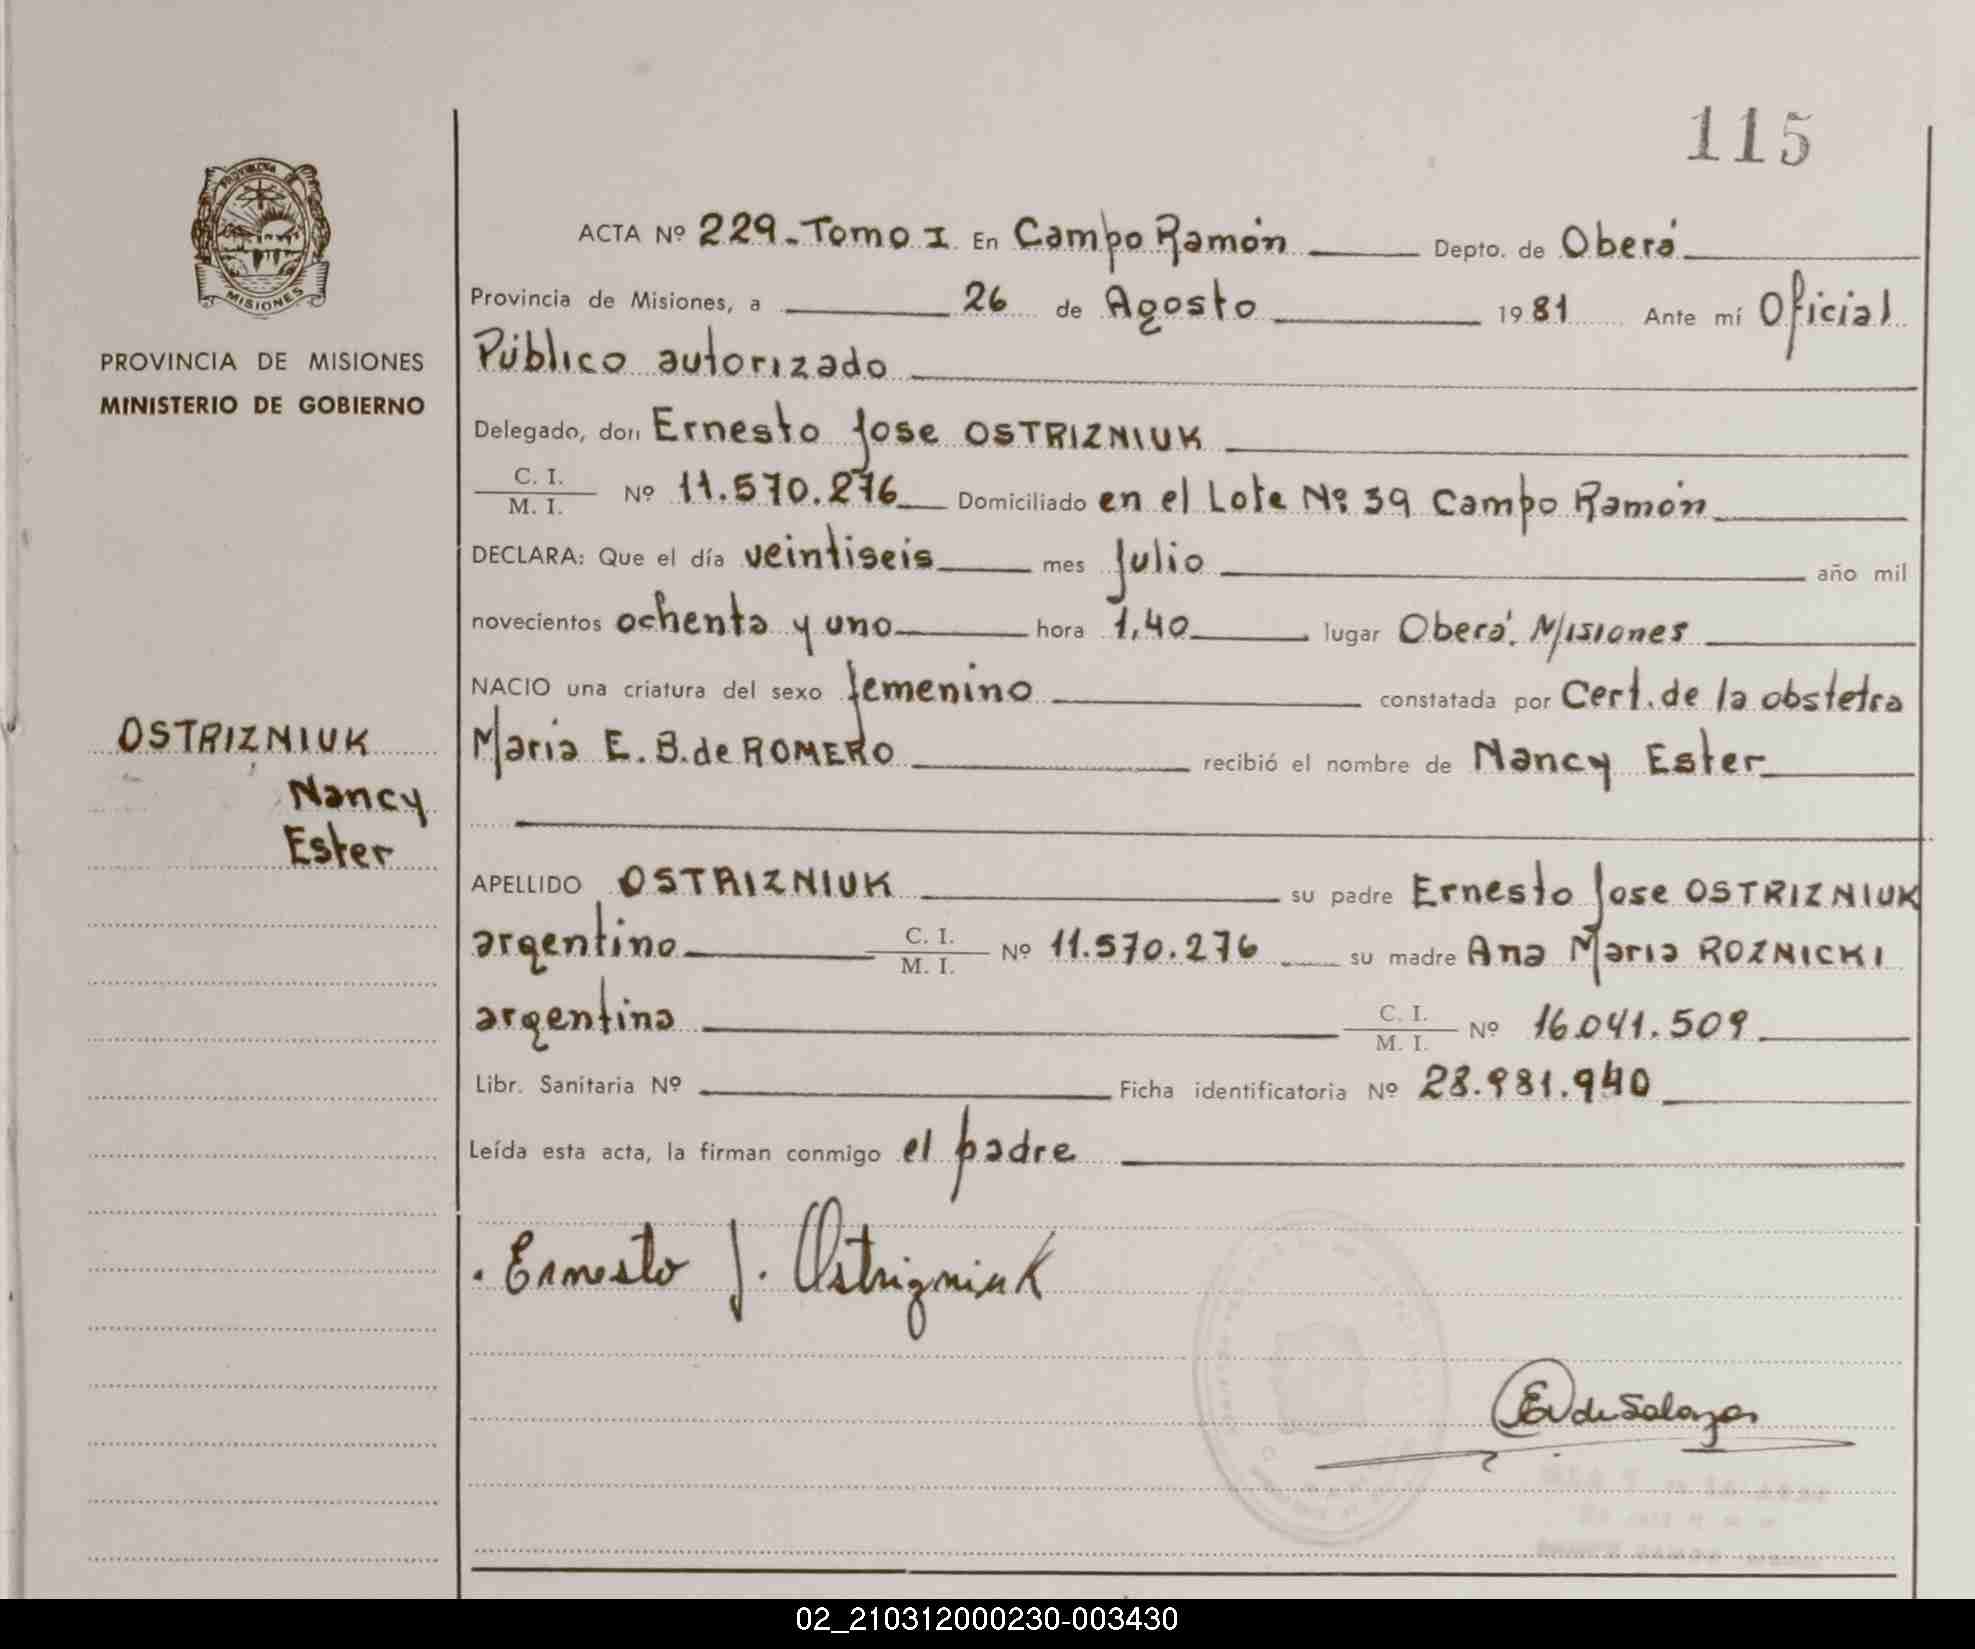 115
PROVINCIA DE MISIONES
MINISTERIO DE GOBIERNO
OSTRIZNIUK
Nancy
Ester
ACTA Nº 229-Tomo I En Campo Ramón Depto. de Oberá
Provincia de Misiones, a 26 de Agosto 1981 Ante mí Oficial
Público autorizado
Delegado, don Ernesto Jose OSTRIZNIUK
C. I.
M. I. Nº 11.570.276 Domiciliado en el Lote Nº 39 Campo Ramón
DECLARA: Que el día veintiseis mes Julio año mil
novecientos ochenta y uno hora 1,40 lugar Oberá. Misiones
NACIO una criatura del sexo femenino constatada por Cert. de la obstetra
Maria E. B. de ROMERO recibió el nombre de Nancy Ester
APELLIDO OSTRIZNIUK su padre Ernesto Jose OSTRIZNIUK
argentino C. I.
M. I. Nº 11.570.276 su madre Ana Maria ROZNICKI
argentina C. I.
M. I. Nº 16.041.509
Libr. Sanitaria Nº Ficha identificatoria Nº 28.981.940
Leída esta acta, la firman conmigo el padre
Ernesto J. Ostrizniuk
de Salazar
02_210312000230-003430